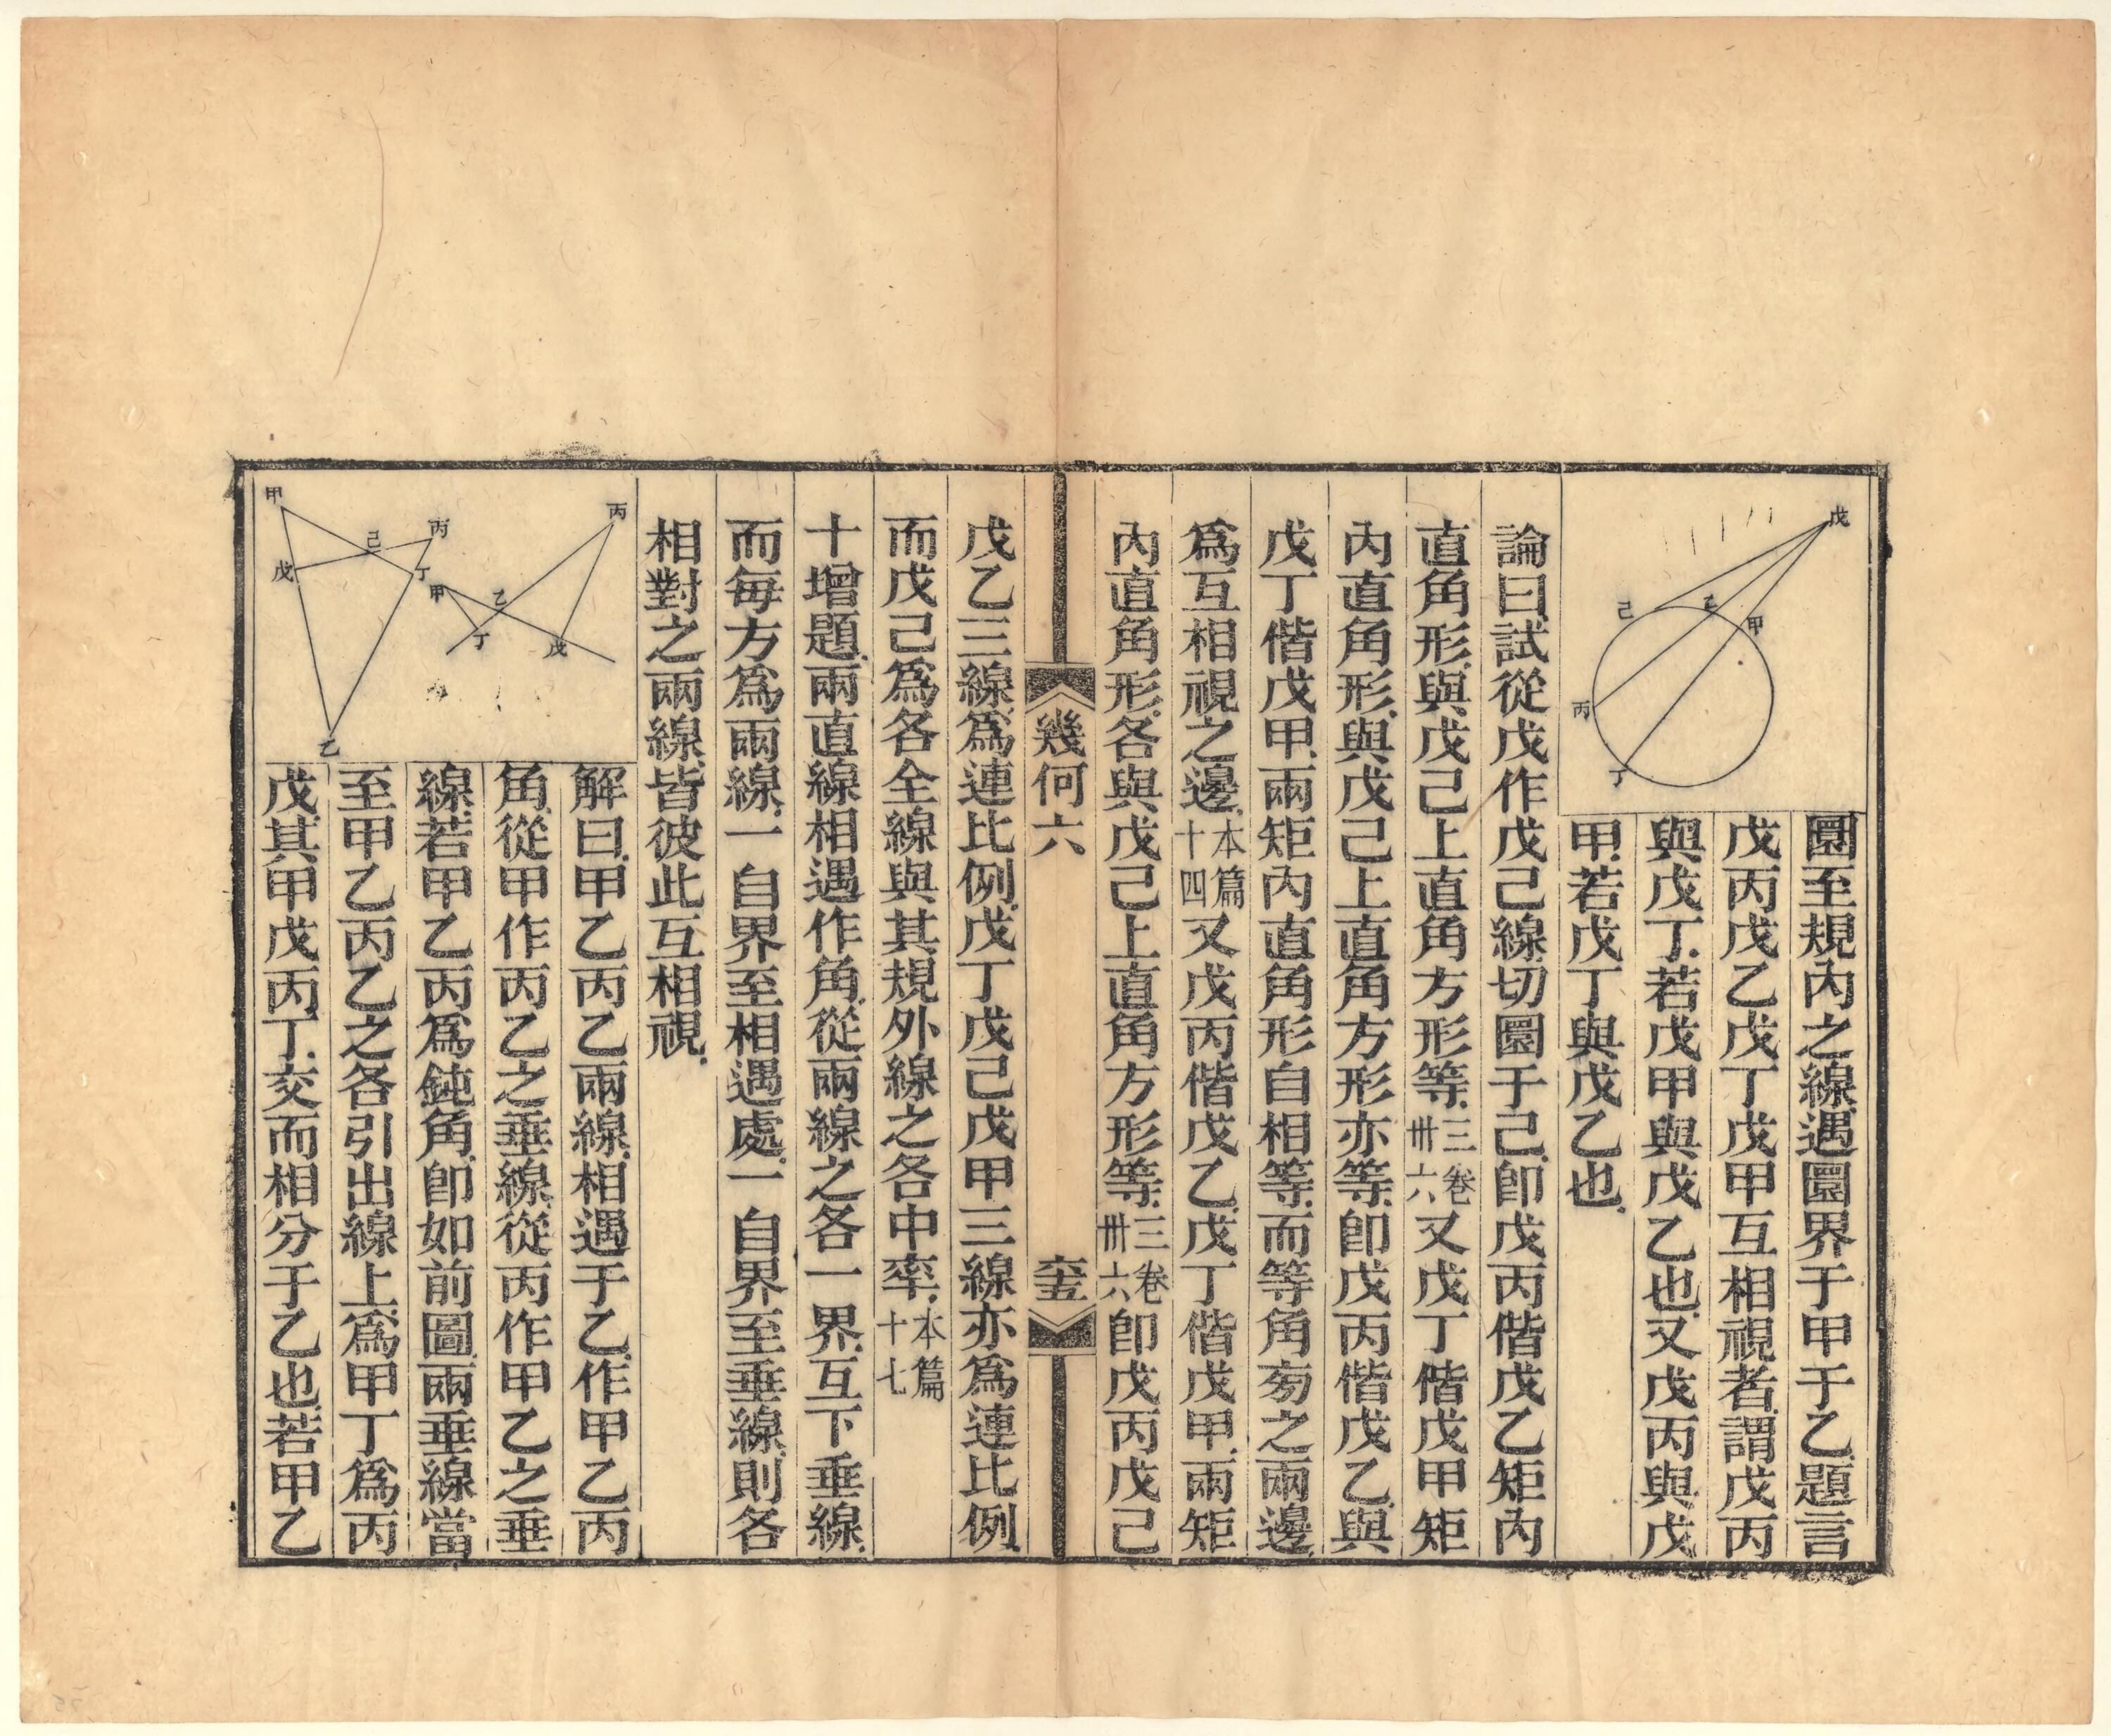 戊
己
乙
甲
丙
丁
圜至規內之線遇圜界于甲于乙題言
戊丙戊乙戊丁戊甲互相視者謂戊丙
與戊丁若戊甲與戊乙也又戊丙與戊
甲若戊丁與戊乙也
論曰試從戊作戊己線切圜于己卽戊丙偕戊乙矩內
直角形與戊己上直角方形等三卷卅六又戊丁偕戊甲矩
內直角形與戊己上直角方形亦等卽戊丙偕戊乙與
戊丁偕戊甲兩矩內直角形自相等而等角旁之兩邊
爲互相視之邊本篇十四又戊丙偕戊乙戊丁偕戊甲兩矩
內直角形各與戊己上直角方形等三卷卅六卽戊丙戊己
幾何六
戊乙三線爲連比例戊丁戊己戊甲三線亦爲連比例
而戊己爲各全線與其規外線之各中率本篇十七
十增題兩直線相遇作角從兩線之各一界互下垂線
而每方爲兩線一自界至相遇處一自界至垂線則各
相對之兩線皆彼此互相視
丙
乙
甲
丁
戊
甲
己
丙
戊
丁
乙
解曰甲乙丙乙兩線相遇于乙作甲乙丙
角從甲作丙乙之垂線從丙作甲乙之垂
線若甲乙丙爲鈍角卽如前圖兩垂線當
至甲乙丙乙之各引出線上爲甲丁爲丙
戊其甲戊丙丁交而相分于乙也若甲乙